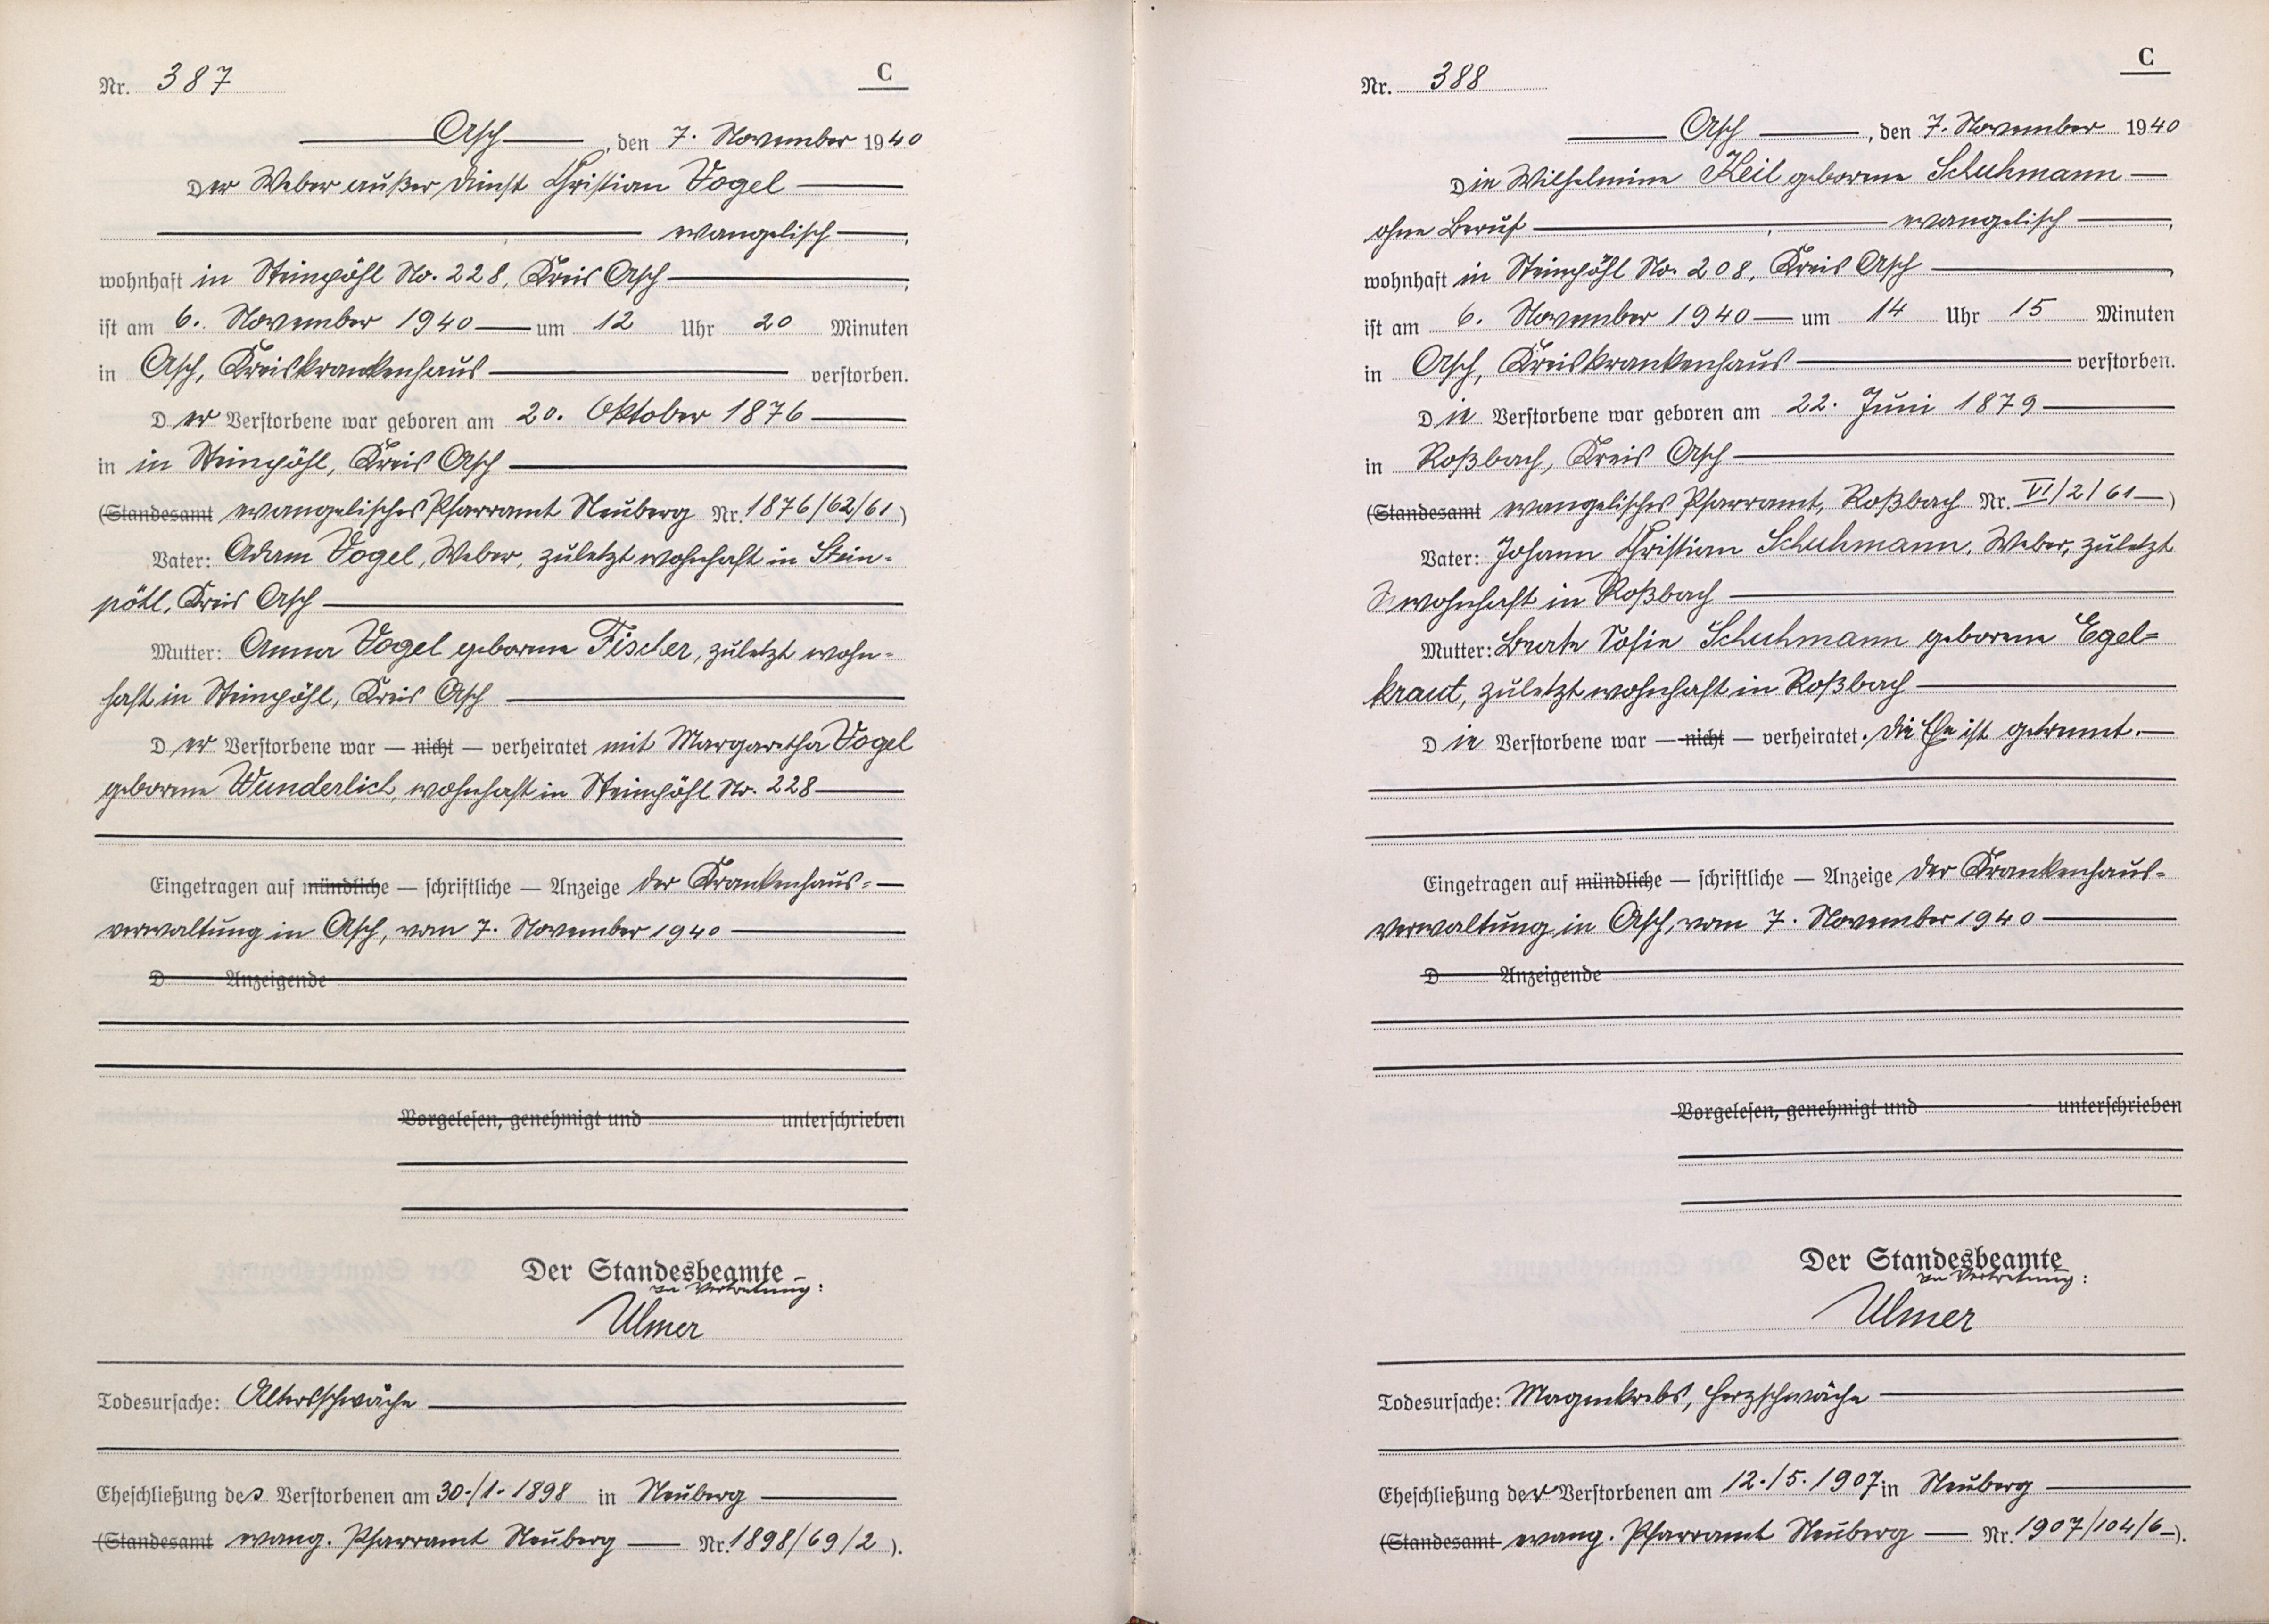 Nr. 387
C
Asch, den 7. November 1940
Der Weber außer Dienst Christian Vogel
evangelisch,
wohnhaft in Steinpöhl No. 228, Kreis Asch,
ist am 6. November 1940 um 12 Uhr 20 Minuten
in Asch, Kreiskrankenhaus verstorben.
Der Verstorbene war geboren am 20. Oktober 1876
in in Steinpöhl, Kreis Asch
(Standesamt evangelisches Pfarramt Neuberg Nr. 1876/62/61)
Vater: Adam Vogel, Weber, zuletzt wohnhaft in Stein-
pöhl, Kreis Asch
Mutter: Anna Vogel geborene Fischer, zuletzt wohn-
haft in Steinpöhl, Kreis Asch
Der Verstorbene war — nicht — verheiratet mit Margaretha Vogel
geborene Wunderlich, wohnhaft in Steinpöhl No. 228
Eingetragen auf mündliche — schriftliche — Anzeige der Krankenhaus-
verwaltung in Asch, vom 7. November 1940
D Anzeigende
Vorgelesen, genehmigt und unterschrieben
Der Standesbeamte
In Vertretung:
Ulmer
Todesursache: Altersschwäche
Eheschließung des Verstorbenen am 30./1. 1898 in Neuberg
(Standesamt evang. Pfarramt Neuberg Nr. 1898/69/2).
Nr. 388
C
Asch, den 7. November 1940
Die Wilhelmine Keil geborene Schuhmann
ohne Beruf, evangelisch,
wohnhaft in Steinpöhl No. 208, Kreis Asch,
ist am 6. November 1940 um 14 Uhr 15 Minuten
in Asch, Kreiskrankenhaus verstorben.
Die Verstorbene war geboren am 22. Juni 1879
in Roßbach, Kreis Asch
(Standesamt evangelisches Pfarramt, Roßbach Nr. VI/2/61)
Vater: Johann Christian Schuhmann, Weber, zuletzt
wohnhaft in Roßbach
Mutter: Berta Sofie Schuhmann geborene Egel-
kraut, zuletzt wohnhaft in Roßbach
Die Verstorbene war — nicht — verheiratet. Die Ehe ist getrennt.
Eingetragen auf mündliche — schriftliche — Anzeige der Krankenhaus-
verwaltung in Asch, vom 7. November 1940
D Anzeigende
Vorgelesen, genehmigt und unterschrieben
Der Standesbeamte
In Vertretung:
Ulmer
Todesursache: Magenkrebs, Herzschwäche
Eheschließung der Verstorbenen am 12./5. 1907 in Neuberg
(Standesamt evang. Pfarramt Neuberg Nr. 1907/104/6).